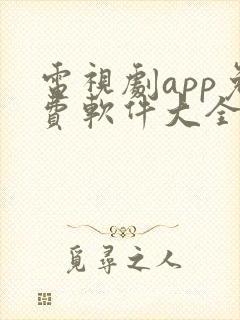 電視劇app免
費軟件大全
覓尋之人